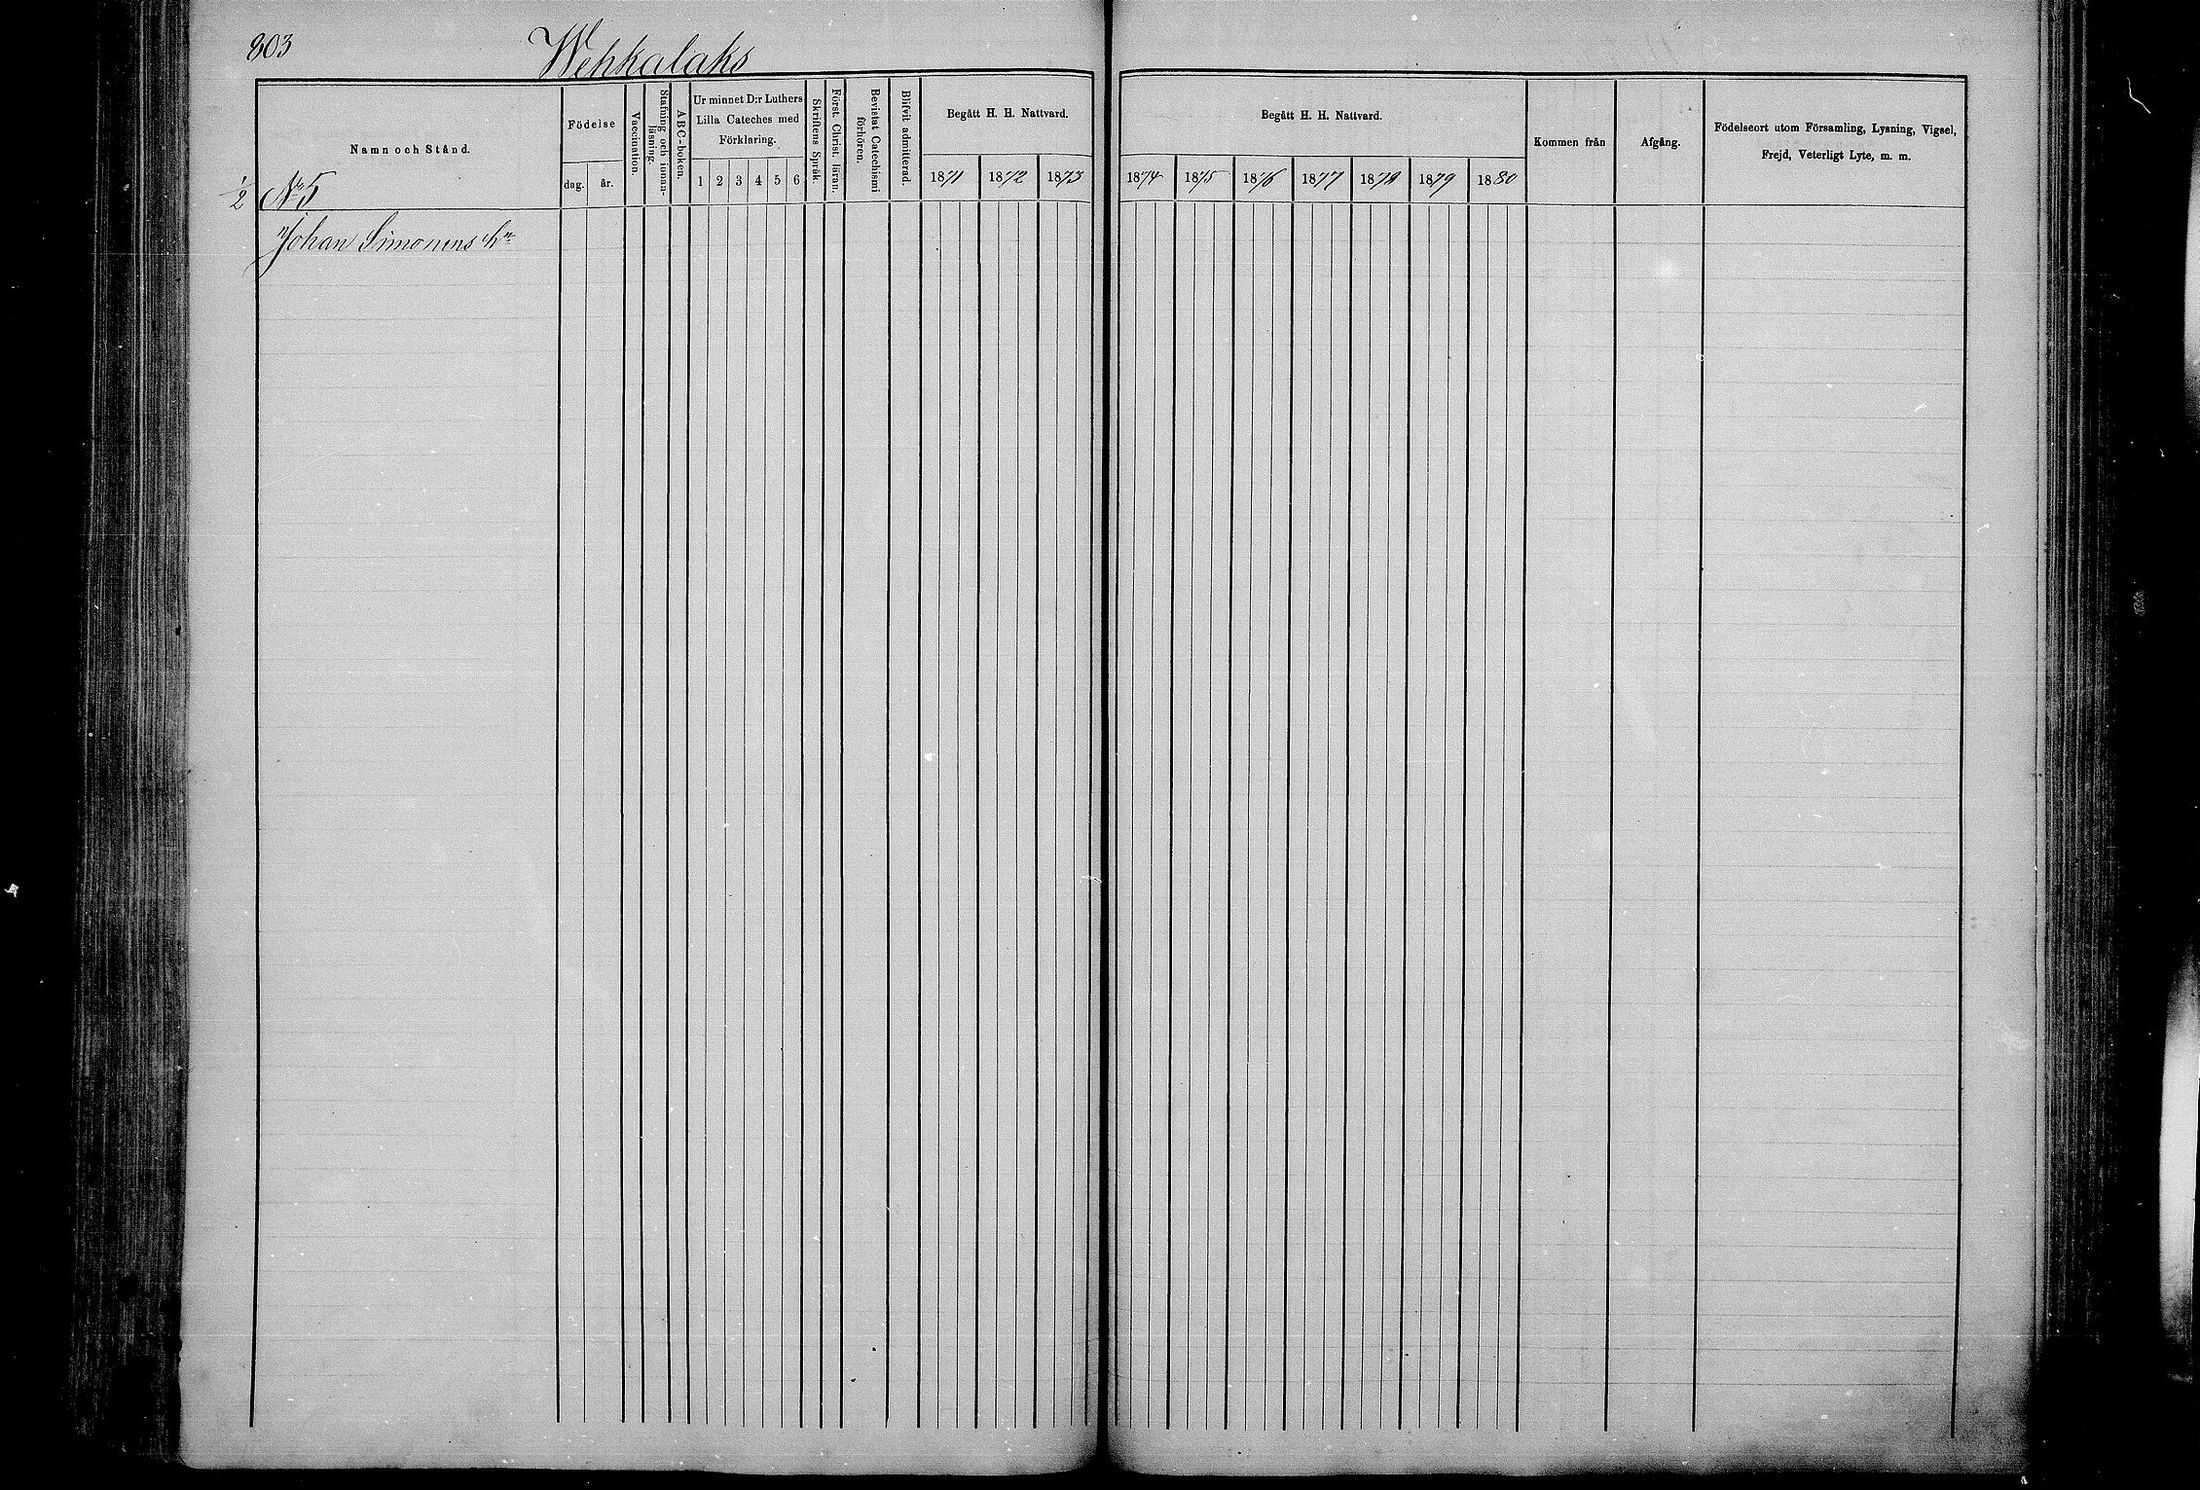 803
Wehkalaks
Namn och Stånd.
Födelse
dag.
år.
Vaccination.
Stafning och innan-
läsning.
ABC-boken.
Ur minnet D:r Luthers
Lilla Cateches med
Förklaring.
1 2 3 4 5 6
Skriftens Språk.
Först. Christ. läran.
Bevistat Catechismi
förhören.
Blifvit admitterad.
Begått H. H. Nattvard.
1871 1872 1873
Begått H. H. Nattvard.
1874 1875 1876 1877 1878 1879 1880
Kommen från
Afgång.
Födelseort utom Församling, Lysning, Vigsel,
Frejd, Veterligt Lyte, m. m.
1/2 No 5
Johan Simonens hn